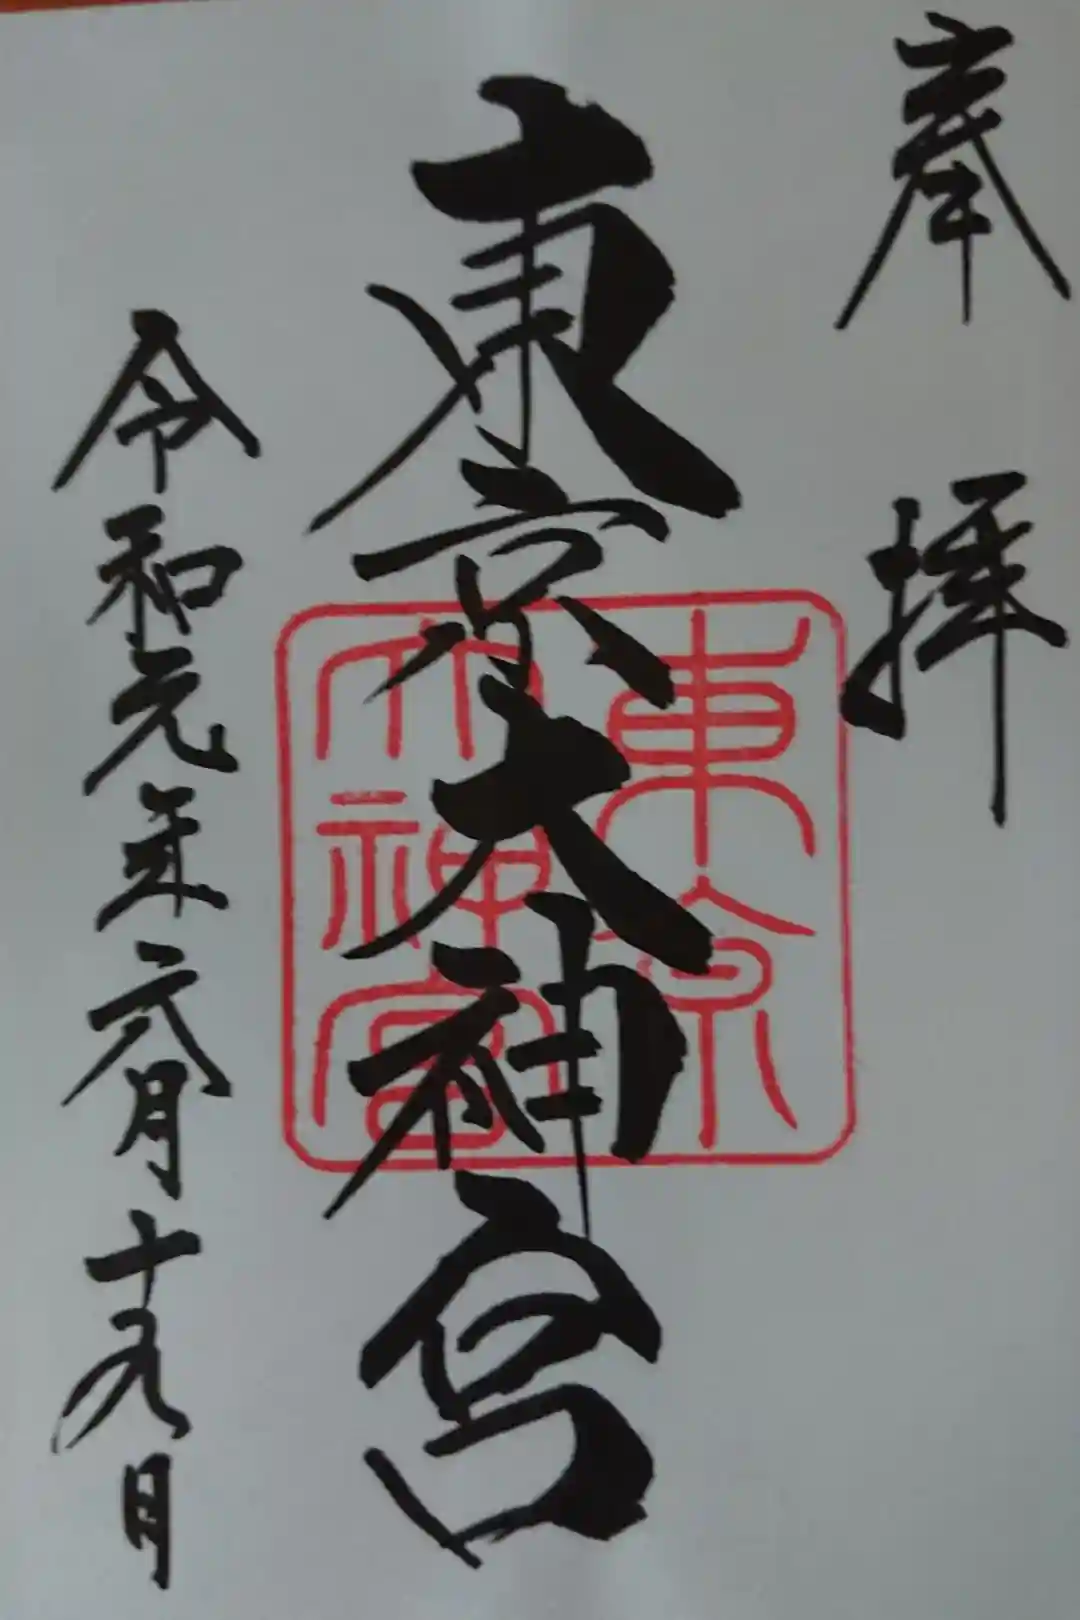 奉拝
東京大神宮
東京
大神宮
令和元年六月十九日